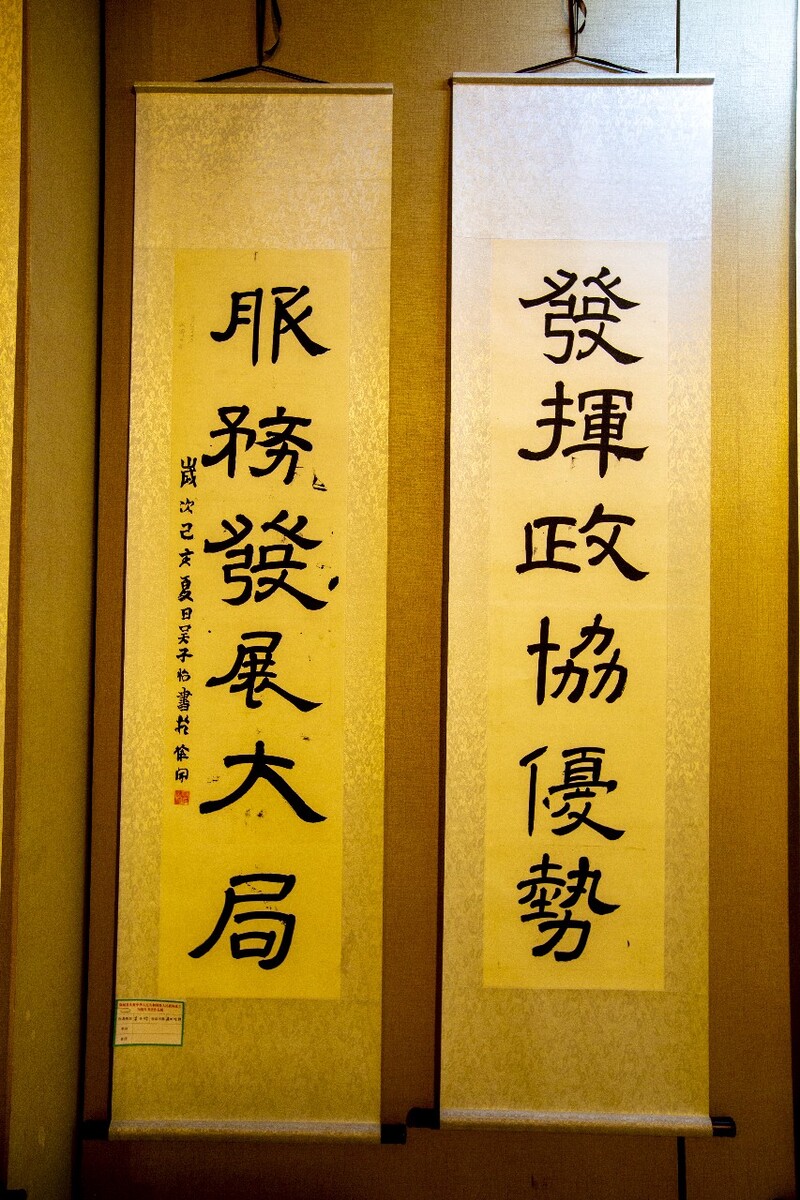 發揮政協優勢
服務發展大局
歲次己亥夏日吴子怡書於